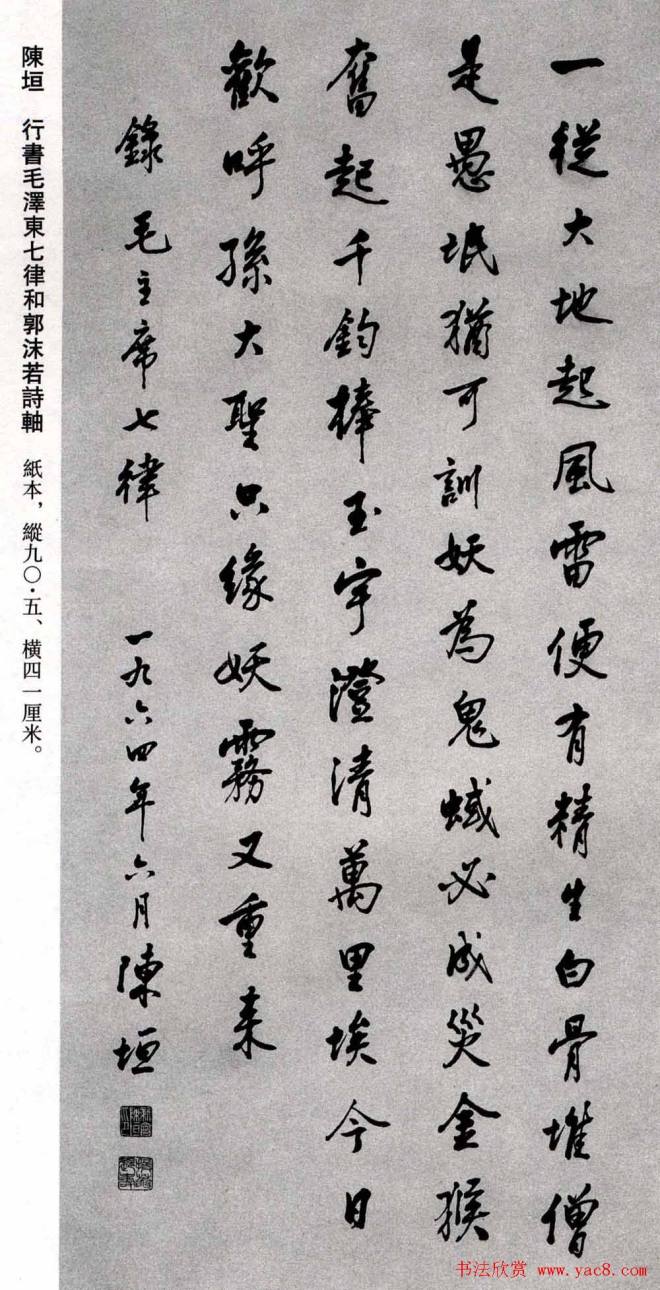 一從大地起風雷便有精生白骨堆僧
是愚氓猶可訓妖為鬼蜮必成災金猴
奮起千鈞棒玉宇澄清萬里埃今日
歡呼孫大聖只緣妖霧又重来
錄毛主席七律 一九六四年六月陳垣
陳垣 行書毛澤東七律和郭沫若詩軸 紙本，縱九〇·五、橫四一厘米。
书法欣赏 www.yac8.com